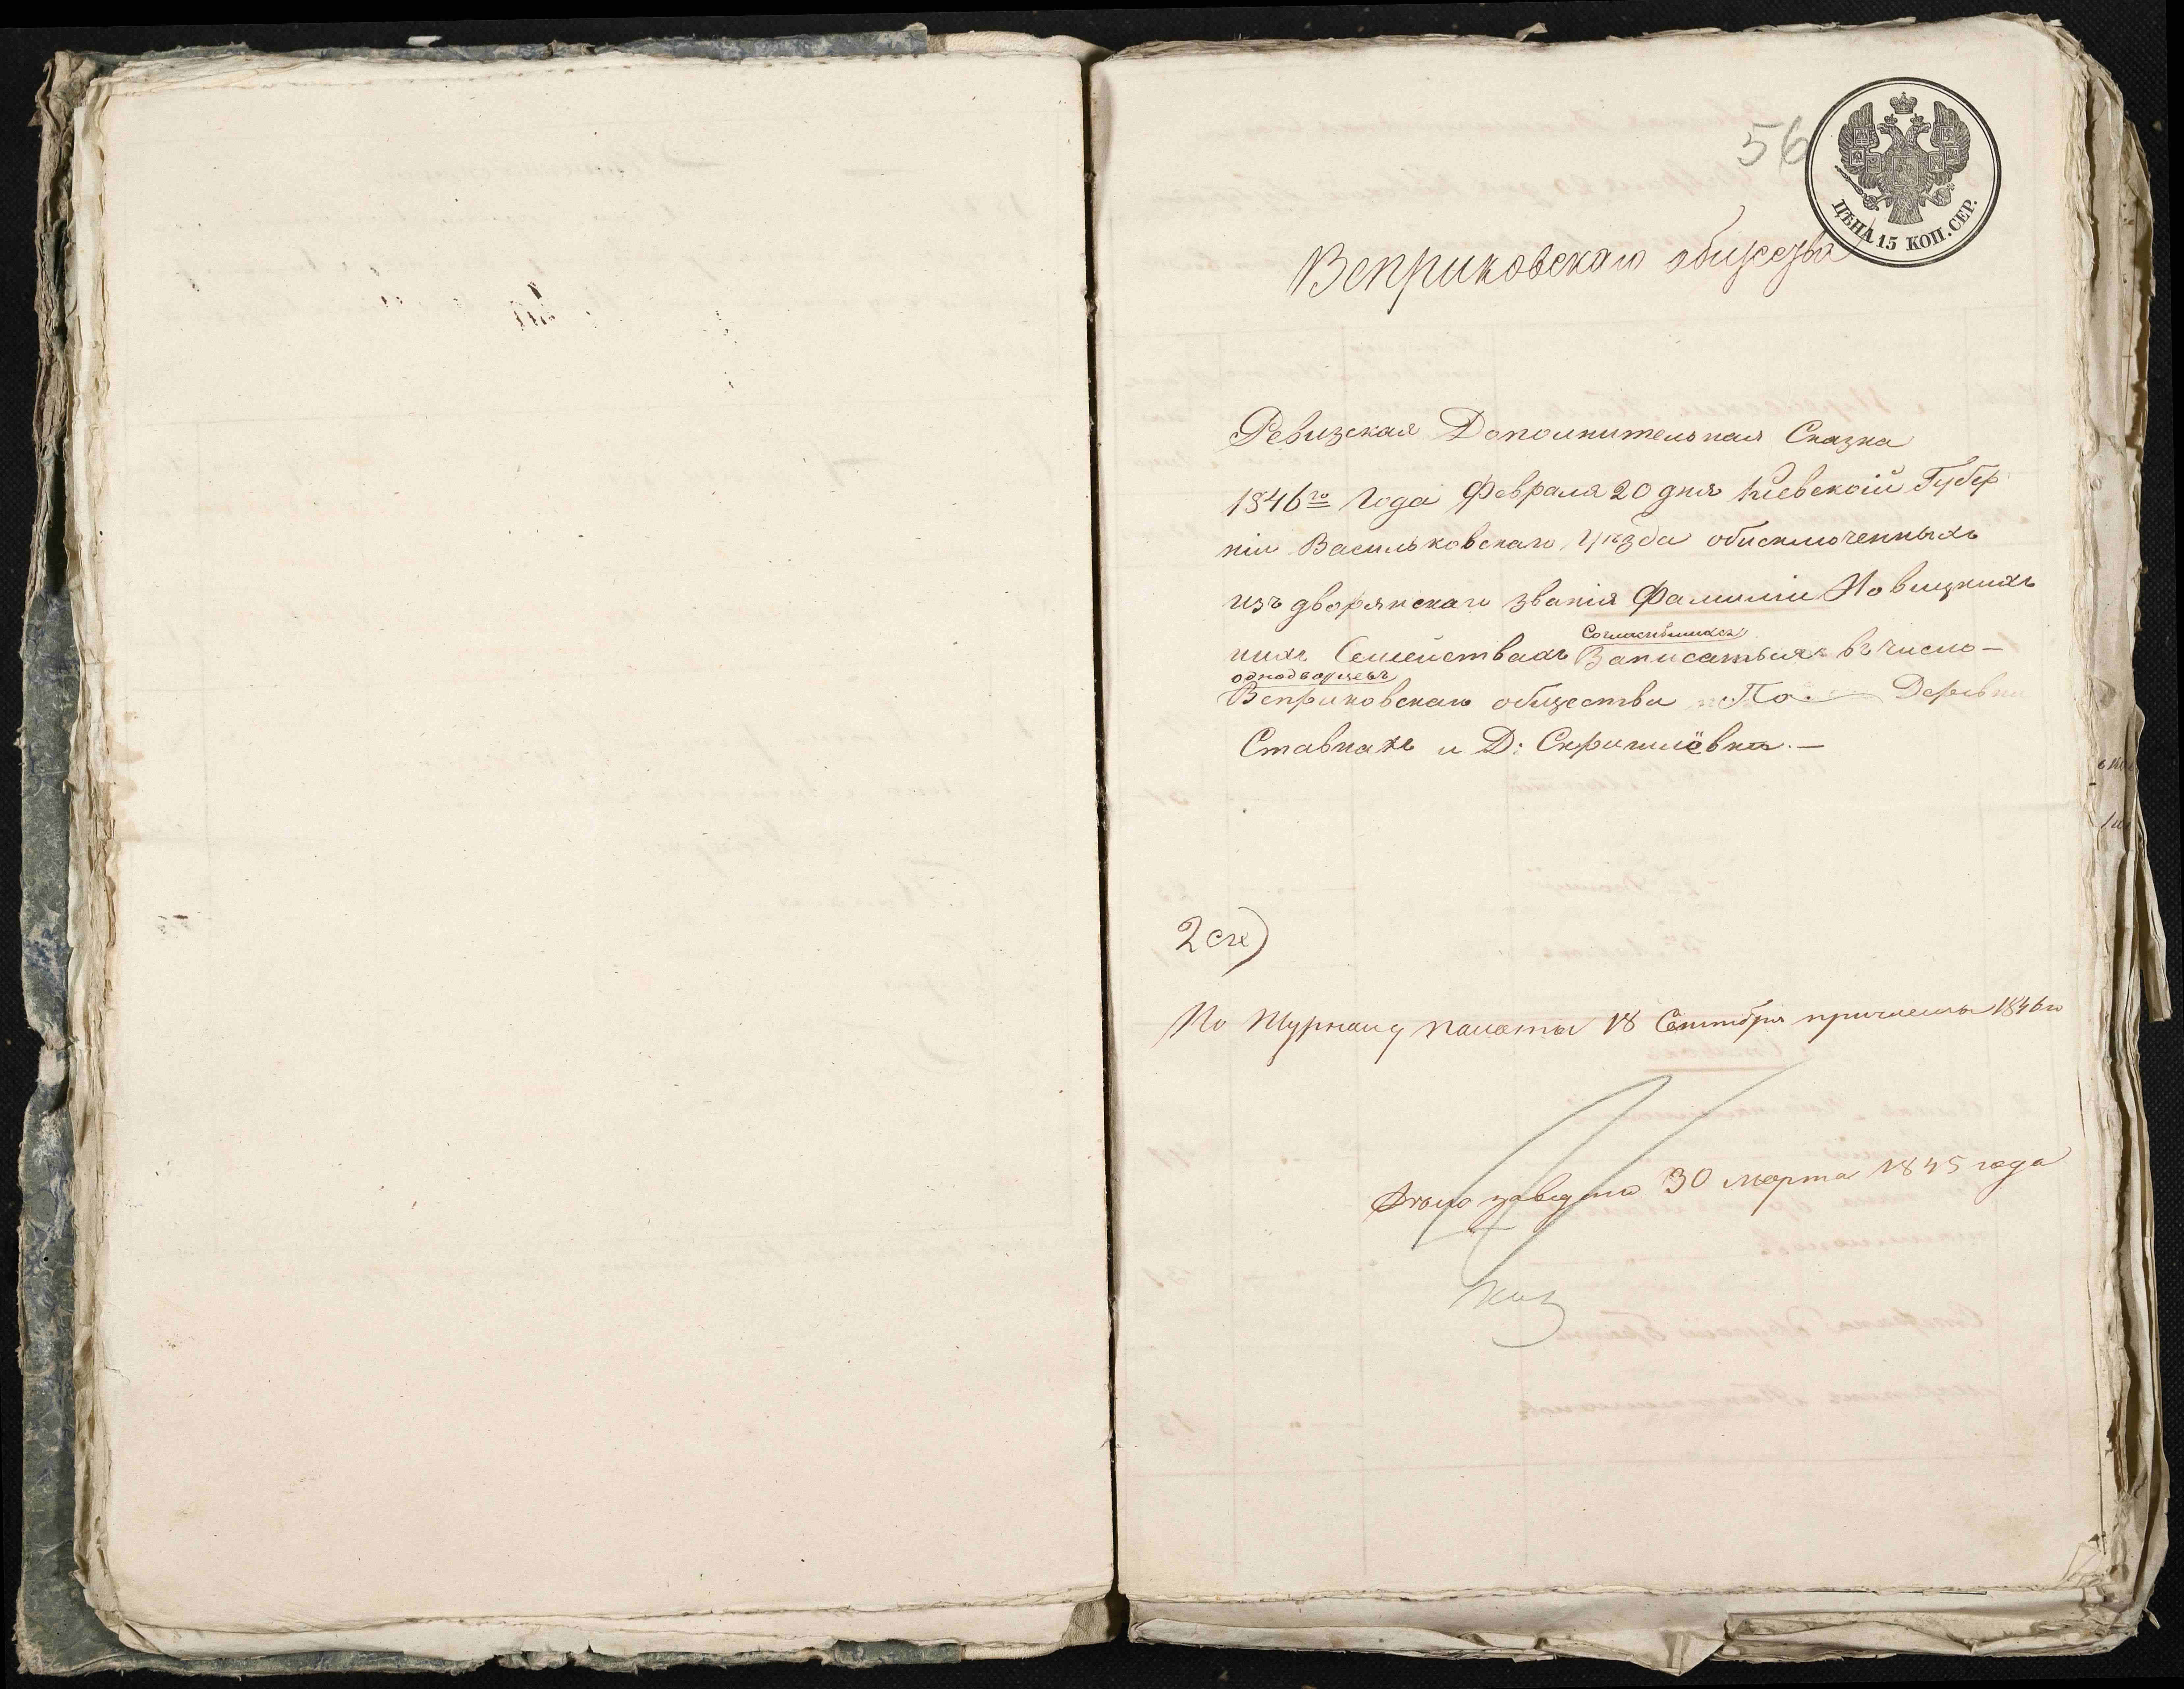 56
ЦѢНА 15 КОП. СЕР.
Веприковскаго общества
Ревизская Дополнительная Сказка
1846го Года Февраля 20 дня Киевской Губер
ніи Васильковскаго Уѣзда объисключенныхъ
изъ дворянскаго званія Фамиліи Новицкихъ
ихъ Семействахъ Согласившихся Записаться въ число —
однодворцевъ
Веприковскаго общества По — Деревни
Ставкахъ и Д: Скригилёвки. —
2 се)
По Журналу палаты 18 Сентября причислены 1846го
Дѣло заведено 30 марта 1845 года